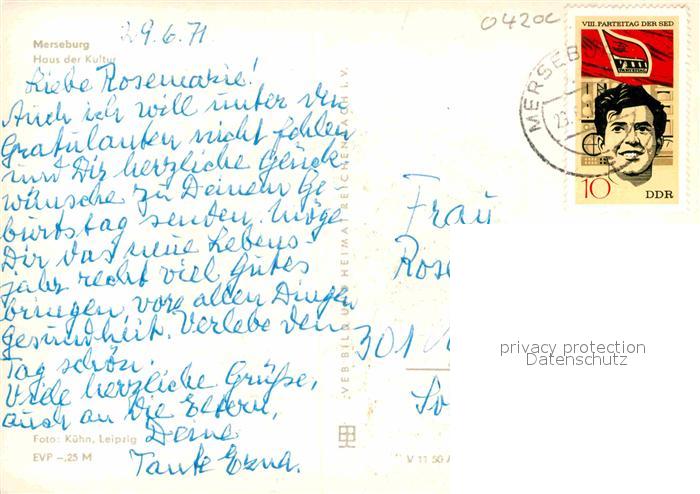 29.6.71
0420c
Merseburg
Haus der Kultur
Liebe Rosemarie!
Auch ich will unter den
Gratulanten nicht fehlen
und Dir herzliche Glück
wünsche zu Deinem Ge
burtstag senden. Möge
Dir das neue Lebens-
jahr recht viel Gutes
bringen, vor allen Dingen
Gesundheit. Verlebe den
Tag schön.
Viele herzliche Grüße,
auch an die Eltern,
Deine
Tante Erna.
Foto: Kühn, Leipzig
EVP -,25 M
VEB BILD UND HEIMAT REICHENBACH I. V.
V 11 50
VIII. PARTEITAG DER SED
VIII
PARTEITAG
10
DDR
MERSEBU
Frau
Rose
301
privacy protection
Datenschutz